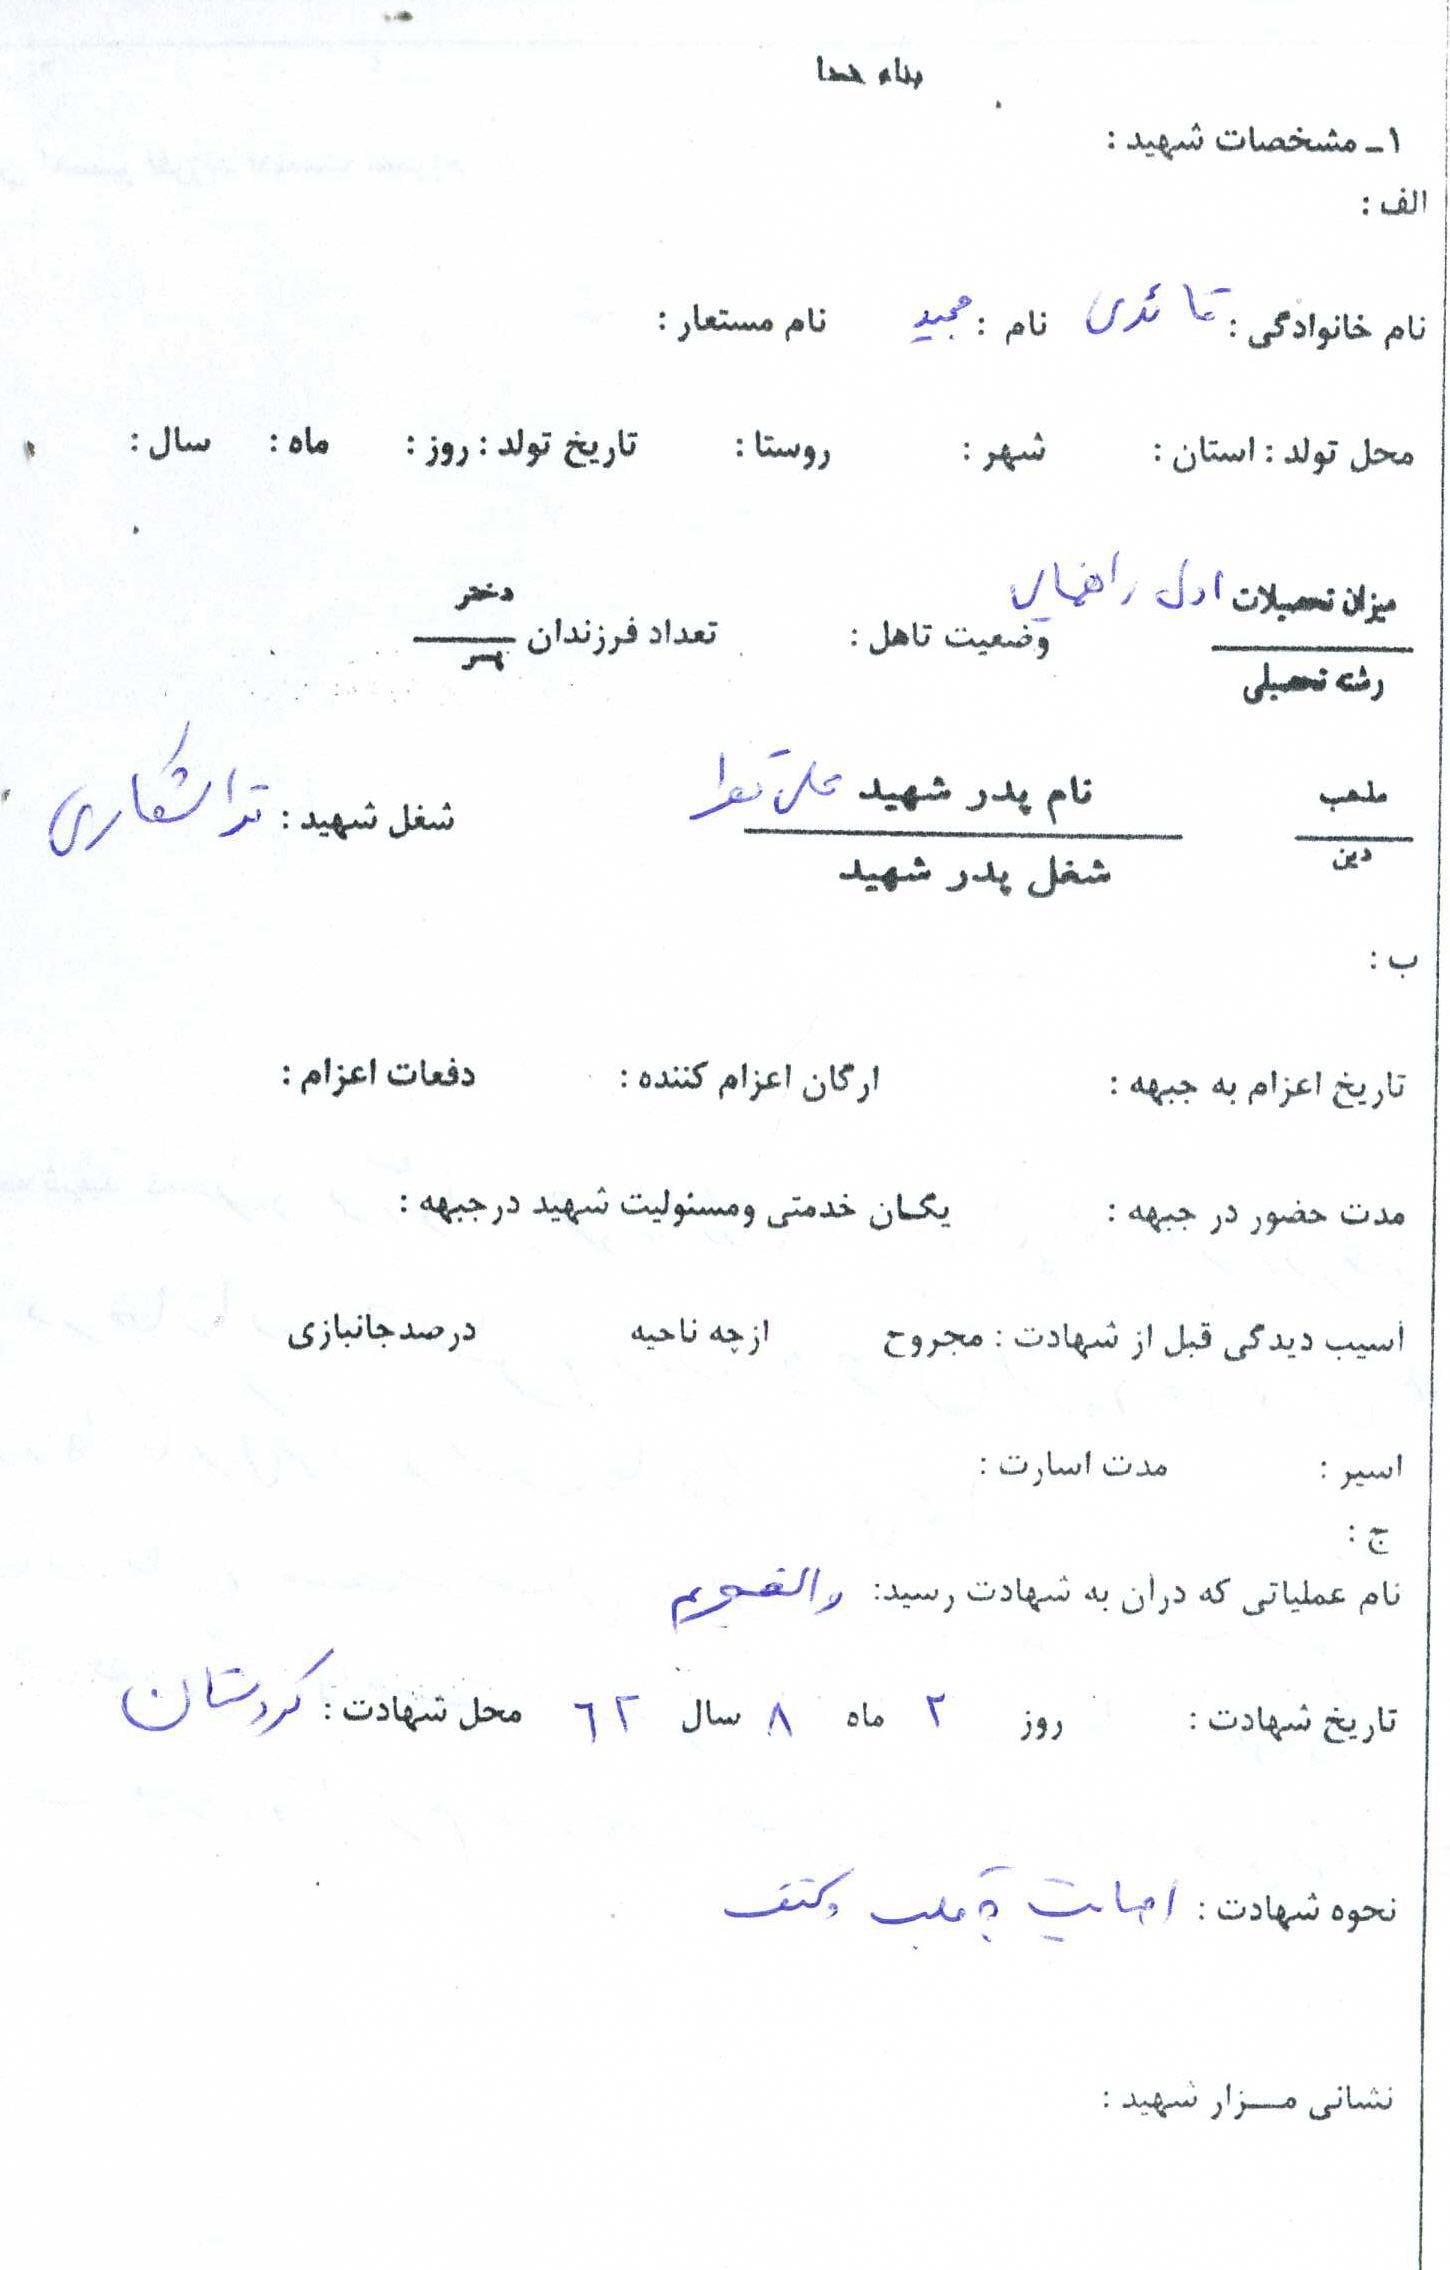 بنام خدا
۱ـ مشخصات شهید :
الف :
نام خانوادگی : قائدی نام : مجید نام مستعار :
محل تولد : استان : شهر : روستا : تاریخ تولد : روز : ماه : سال :
میزان تحصیلات اول راهنمایی
وضعیت تاهل : تعداد فرزندان دختر
پسر
رشته تحصیلی
مذهب نام پدر شهید شغل شهید : تراشکاری
دین شغل پدر شهید
ب :
تاریخ اعزام به جبهه : ارگان اعزام کننده : دفعات اعزام :
مدت حضور در جبهه : یگان خدمتی ومسئولیت شهید درجبهه :
آسیب دیدگی قبل از شهادت : مجروح ازچه ناحیه درصدجانبازی
اسیر : مدت اسارت :
ج :
نام عملیاتی که درآن به شهادت رسید:
تاریخ شهادت : روز ۲ ماه ۸ سال ۶۲ محل شهادت : کردستان
نحوه شهادت : اصابت به قلب وکتف
نشانی مـزار شهید :